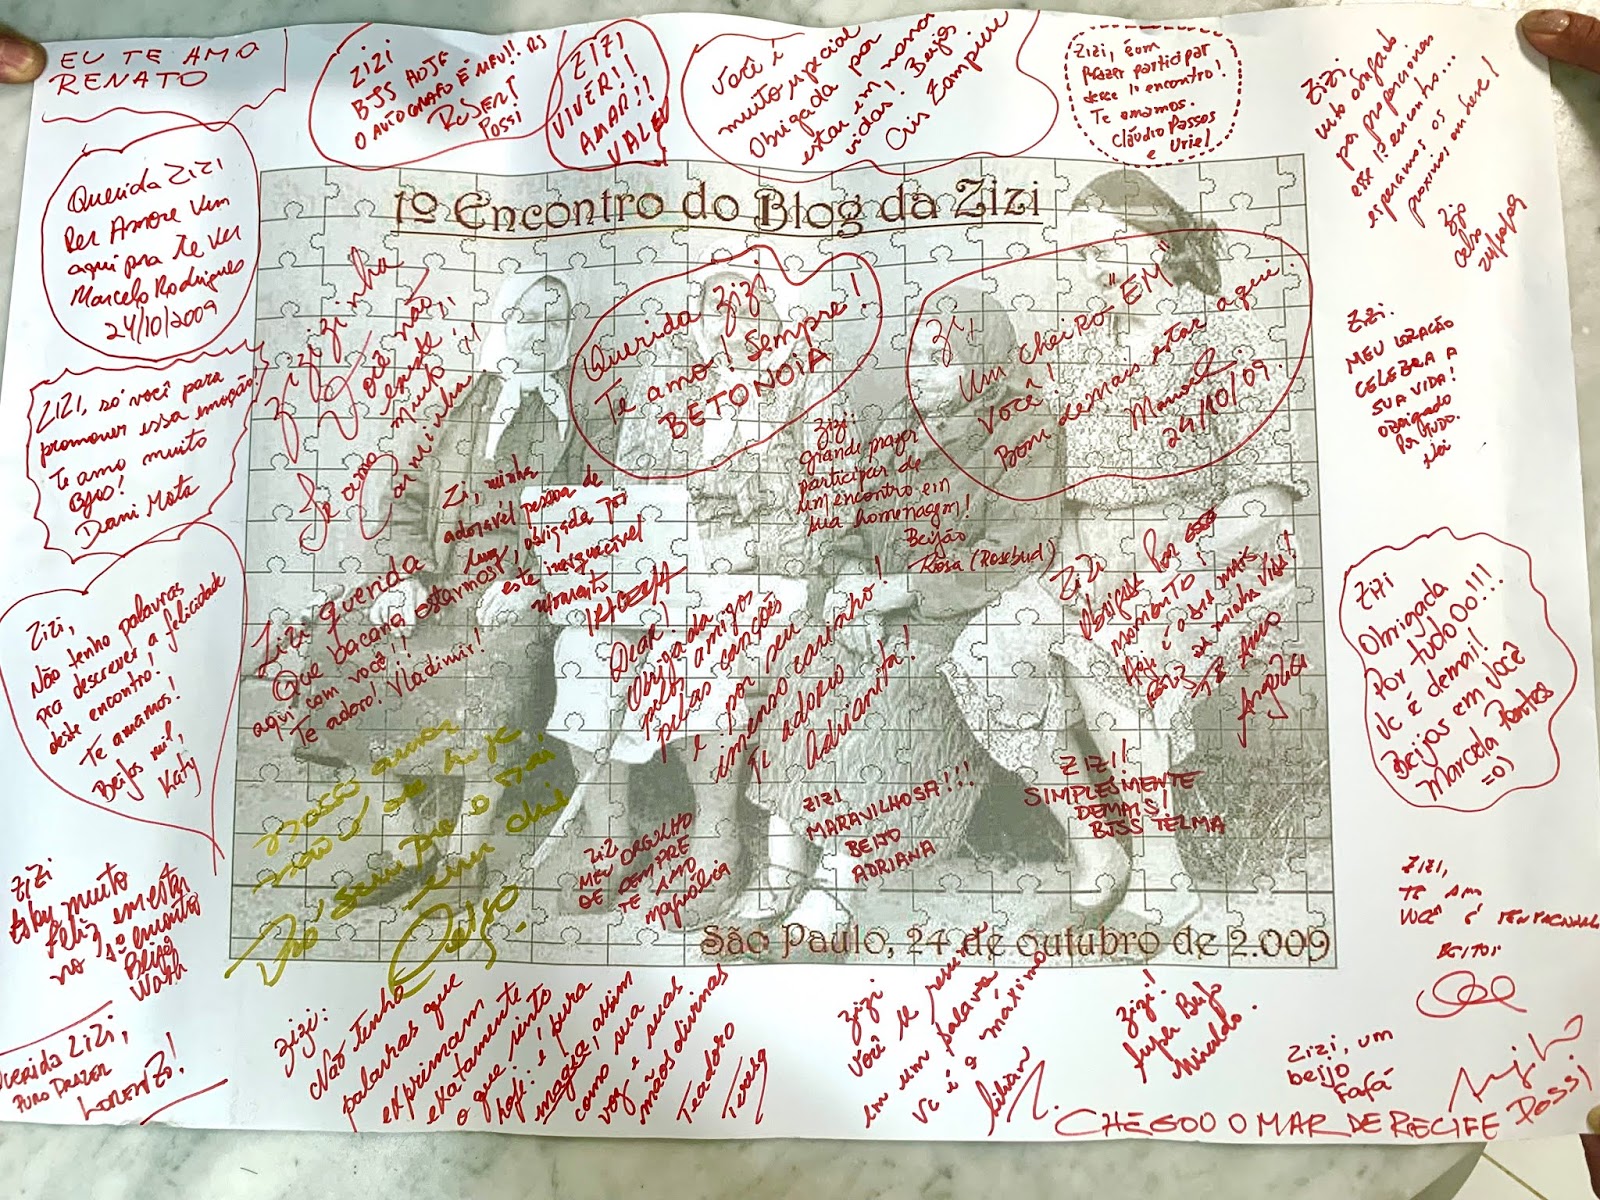 EU TE AMO
RENATO
ZIZI
BJS HOJE
O AUTOGRAFO É MEU!! RS
ROSSI
ZIZI
VIVER!!
AMAR!!
VALEU
Você é
muito especial
Obrigada por
estar em nossas
vidas! Beijos
Cris Zampieri
Zizi, é com
prazer participar
desse 1º encontro!
Te amamos.
Cláudio Passos
e Uriel
Zizi
muito obrigado
por proporcionar
esse 1º encontro...
esperamos os
proximos em breve!
Querida Zizi
Per Amore vim
aqui pra te ver
Marcelo Rodrigues
24/10/2009
1º Encontro do Blog da Zizi
Zizizinha
Você não
entende!!
muito!!
Te amo
Querida Zizi
Te amo! Sempre!
BETONOIA
Zi,
Um cheiro "EM"
Você!
Bom demais estar aqui
24/10/09.
ZIZI.
MEU CORAÇÃO
CELEBRA A
SUA VIDA!
OBRIGADO
POR TUDO.
ZIZI, só você para
promover essa emoção!
Te amo muito
Bjão!
Dani Mota
Zi, minha
adorável pessoa de
luz, obrigada por
este inesquecível
momento
Zizi:
grande prazer
participar de
um encontro em
sua homenagem!
Beijão
Rosa (Rosebud)
Zizi,
Não tenho palavras
pra descrever a felicidade
deste encontro!
Te amamos!
Beijos mil,
Katy
Zizi querida
Que bacana estarmos
aqui com você!!
Te adoro! Vladimir!
Dear!
Obrigada
pelos amigos
pelas canções
e por seu
imenso carinho!
Te adoro
Adrianita!
Zizi
Obrigada por esse
momento!
Hoje é o dia mais
feliz da minha vida!
Te Amo
Angélica
Zizi
Obrigada
Por tudoOo!!!
Vc é demais!
Beijos em você
Marcela Prantes
=0)
ZIZI
MEU ORGULHO
DE SEMPRE
TE AMO
Magnólica
ZIZI
MARAVILHOSA!!!
BEIJO
ADRIANA
ZIZI!
SIMPLESMENTE
DEMAIS!
BJSS TELMA
São Paulo, 24 de outubro de 2.009
ZIZI
Estou muito
feliz em estar
no 1º encontro
Beijos
Wash
ZIZI,
TE AMO
VOCÊ É
BEIJOS
Querida Zizi,
PURO PRAZER
LORENZO!
Zizi:
Não tenho
palavras que
exprimam
exatamente
o que sinto
hoje: é pura
magia, assim
como sua
voz e suas
mãos divinas
Te adoro
Teresa
Zizi
Você se resume
em um palavra
Vc é a máximo
Lilian
Zizi!
Super Beijo
Zizi, um
beijo
Fafá
CHEGOU O MAR DE RECIFE